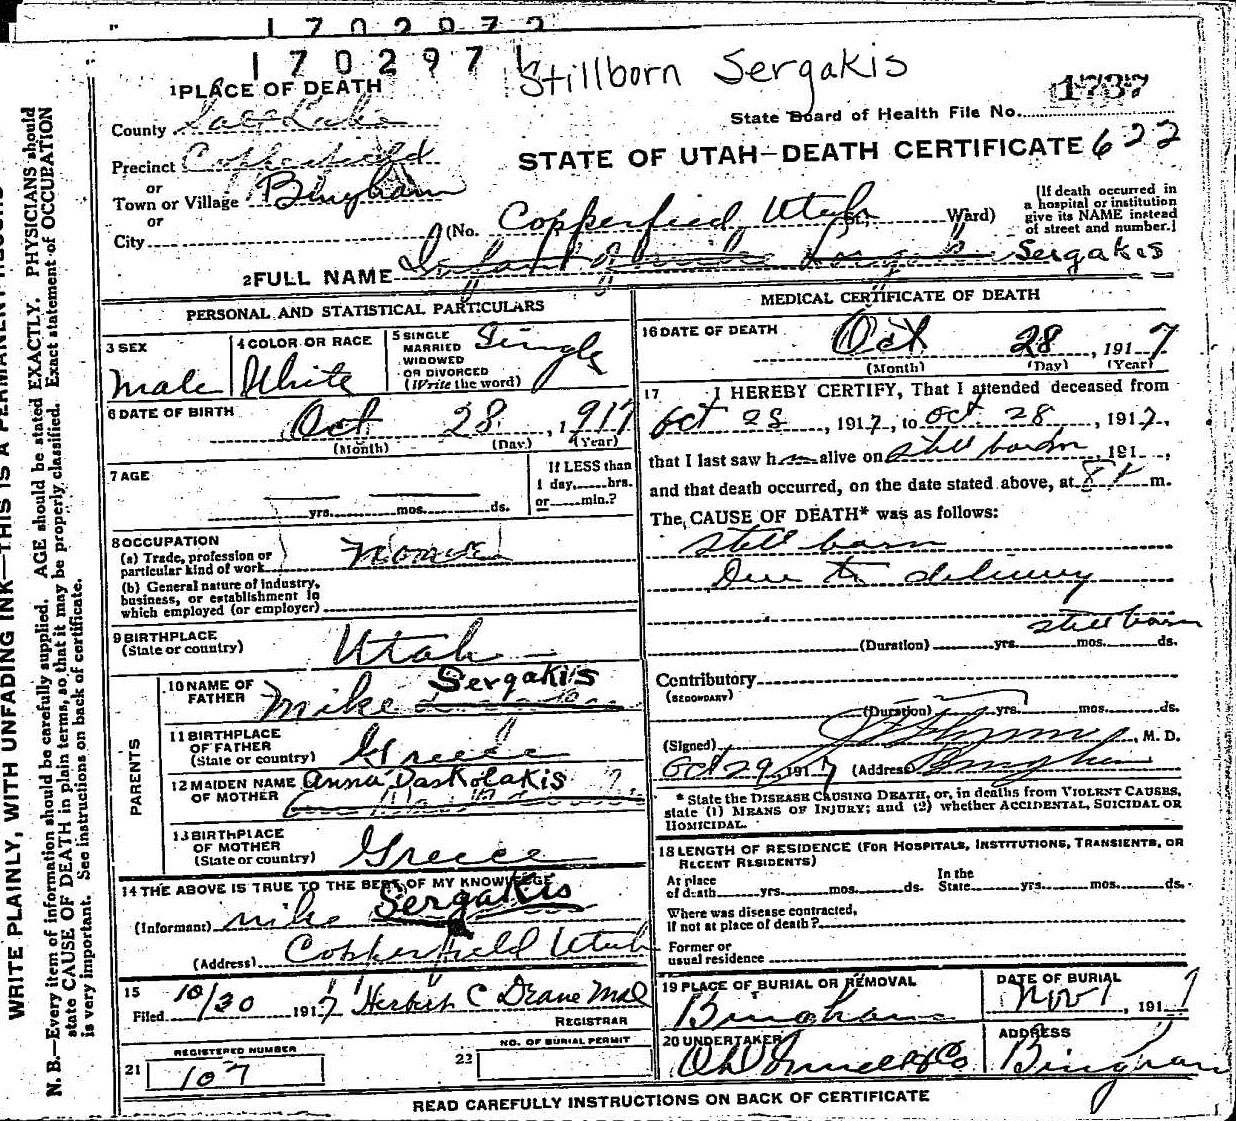 1702972
1702971
Stillborn Sergakis
1737
1 PLACE OF DEATH
State Board of Health File No.
County Salt Lake
STATE OF UTAH—DEATH CERTIFICATE 622
Precinct Copperfield
or
Town or Village Bingham
or
City
(No. Copperfield Utah St., Ward)
[If death occurred in
a hospital or institution
give its NAME instead
of street and number.]
2 FULL NAME Infant Sergakis
PERSONAL AND STATISTICAL PARTICULARS
3 SEX
Male
4 COLOR OR RACE
White
5 SINGLE
MARRIED
WIDOWED
OR DIVORCED
(Write the word)
Single
6 DATE OF BIRTH
Oct 28, 1917
(Month) (Day) (Year)
7 AGE
yrs. mos. ds.
If LESS than
1 day, hrs.
or min.?
8 OCCUPATION
(a) Trade, profession or
particular kind of work
(b) General nature of industry,
business, or establishment in
which employed (or employer)
9 BIRTHPLACE
(State or country) Utah
PARENTS
10 NAME OF
FATHER Mike Sergakis
11 BIRTHPLACE
OF FATHER
(State or country) Greece
12 MAIDEN NAME
OF MOTHER Anna Daskolakis
13 BIRTHPLACE
OF MOTHER
(State or country) Greece
14 THE ABOVE IS TRUE TO THE BEST OF MY KNOWLEDGE
(Informant) Mike Sergakis
(Address) Copperfield Utah
15
Filed 10/30 1917 Herbert C Deane
REGISTRAR
REGISTERED NUMBER
21 107
22
NO. OF BURIAL PERMIT
MEDICAL CERTIFICATE OF DEATH
16 DATE OF DEATH
Oct 28, 1917
(Month) (Day) (Year)
17 I HEREBY CERTIFY, That I attended deceased from
Oct 28, 1917, to Oct. 28, 1917,
that I last saw h alive on still born, 191 ,
and that death occurred, on the date stated above, at m.
The CAUSE OF DEATH* was as follows:
still born
Due to delivery
still born
(Duration) yrs. mos. ds.
Contributory
(SECONDARY)
(Duration) yrs. mos. ds.
(Signed) , M. D.
Oct 29, 1917 (Address) Bingham
* State the DISEASE CAUSING DEATH, or, in deaths from VIOLENT CAUSES,
state (1) MEANS OF INJURY; and (2) whether ACCIDENTAL, SUICIDAL OR
HOMICIDAL.
18 LENGTH OF RESIDENCE (FOR HOSPITALS, INSTITUTIONS, TRANSIENTS, OR
RECENT RESIDENTS)
At place
of death yrs. mos. ds.
In the
State yrs. mos. ds.
Where was disease contracted,
if not at place of death?
Former or
usual residence
19 PLACE OF BURIAL OR REMOVAL
Bingham
DATE OF BURIAL
Nov 1, 1917
20 UNDERTAKER
& Co
ADDRESS
Bingham
READ CAREFULLY INSTRUCTIONS ON BACK OF CERTIFICATE
WRITE PLAINLY, WITH UNFADING INK—THIS IS A PERMANENT RECORD
N. B.—Every item of information should be carefully supplied. AGE should be stated EXACTLY. PHYSICIANS should
state CAUSE OF DEATH in plain terms, so that it may be properly classified. Exact statement of OCCUPATION
is very important. See instructions on back of certificate.